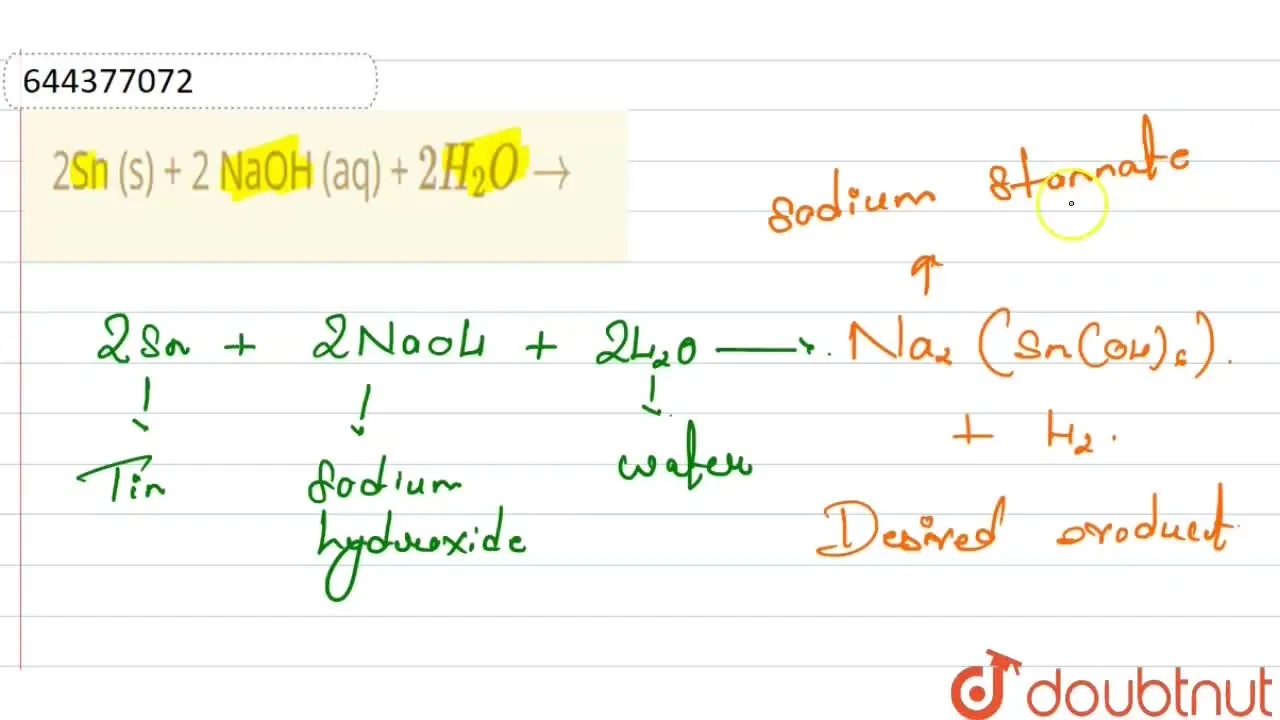 644377072
2Sn (s) + 2 NaOH (aq) + 2H₂O →
sodium stannate
↑
2Sn + 2NaOH + 2H₂O → Na₂ (Sn(OH)₆).
+ H₂.
Tin sodium water
hydroxide
Desired product
doubtnut